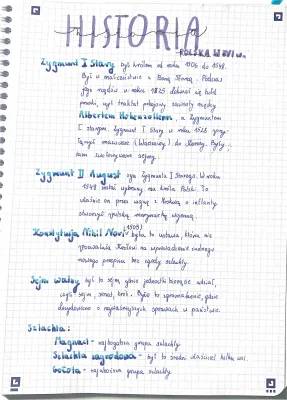 HISTORIA
historia
POLSKA W XVI w.
Zygmunt I Stary był królem od roku 1506 do 1548.
Był w małżeństwie z Boną Sforzą. Podczas
jego rządów w roku 1525 odbywał się hołd
pruski, był traktat pokojowy zawarty między
Albertem Hohenzollernem, a Zygmuntem
I starym. Zygmunt I Stary w roku 1526
mazowsze (Warszawę) do Korony. Były
sejmy.
Zygmunt II August syn Zygmunta I Starego. W roku
1548 został wybrany na króla Polski. To
właśnie on przez wojnę z Moskwą o inflanty
stworzył polską marynarkę wojenną.
Konstytucja Nihil Novi (1505) była to ustawa, która nie
pozwalała Królowi na wprowadzenie żadnego
nowego przepisu bez zgody szlachty.
Sejm walny był to sejm, gdzie jednostki biorące udział,
czyli sejm, senat, król. Było to zgromadzenie, gdzie
decydowano o najważniejszych sprawach w państwie.
Szlachta:
Magnaci - najbogatsza grupa szlachty
Szlachta zagrodowa - był to średni właściciel kilku wsi.
Gołota - najuboższa grupa szlachty